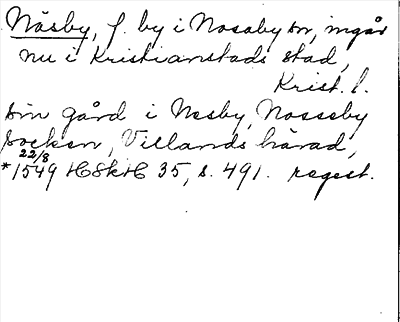 Näsby, f. by i Nosaby sn, ingår
nu i Kristianstads stad,
Krist. l.
sin gård i Nesby, Nosseby
socken, Villands härad,
22/8
*1549 HSkH 35, s. 491. regest.